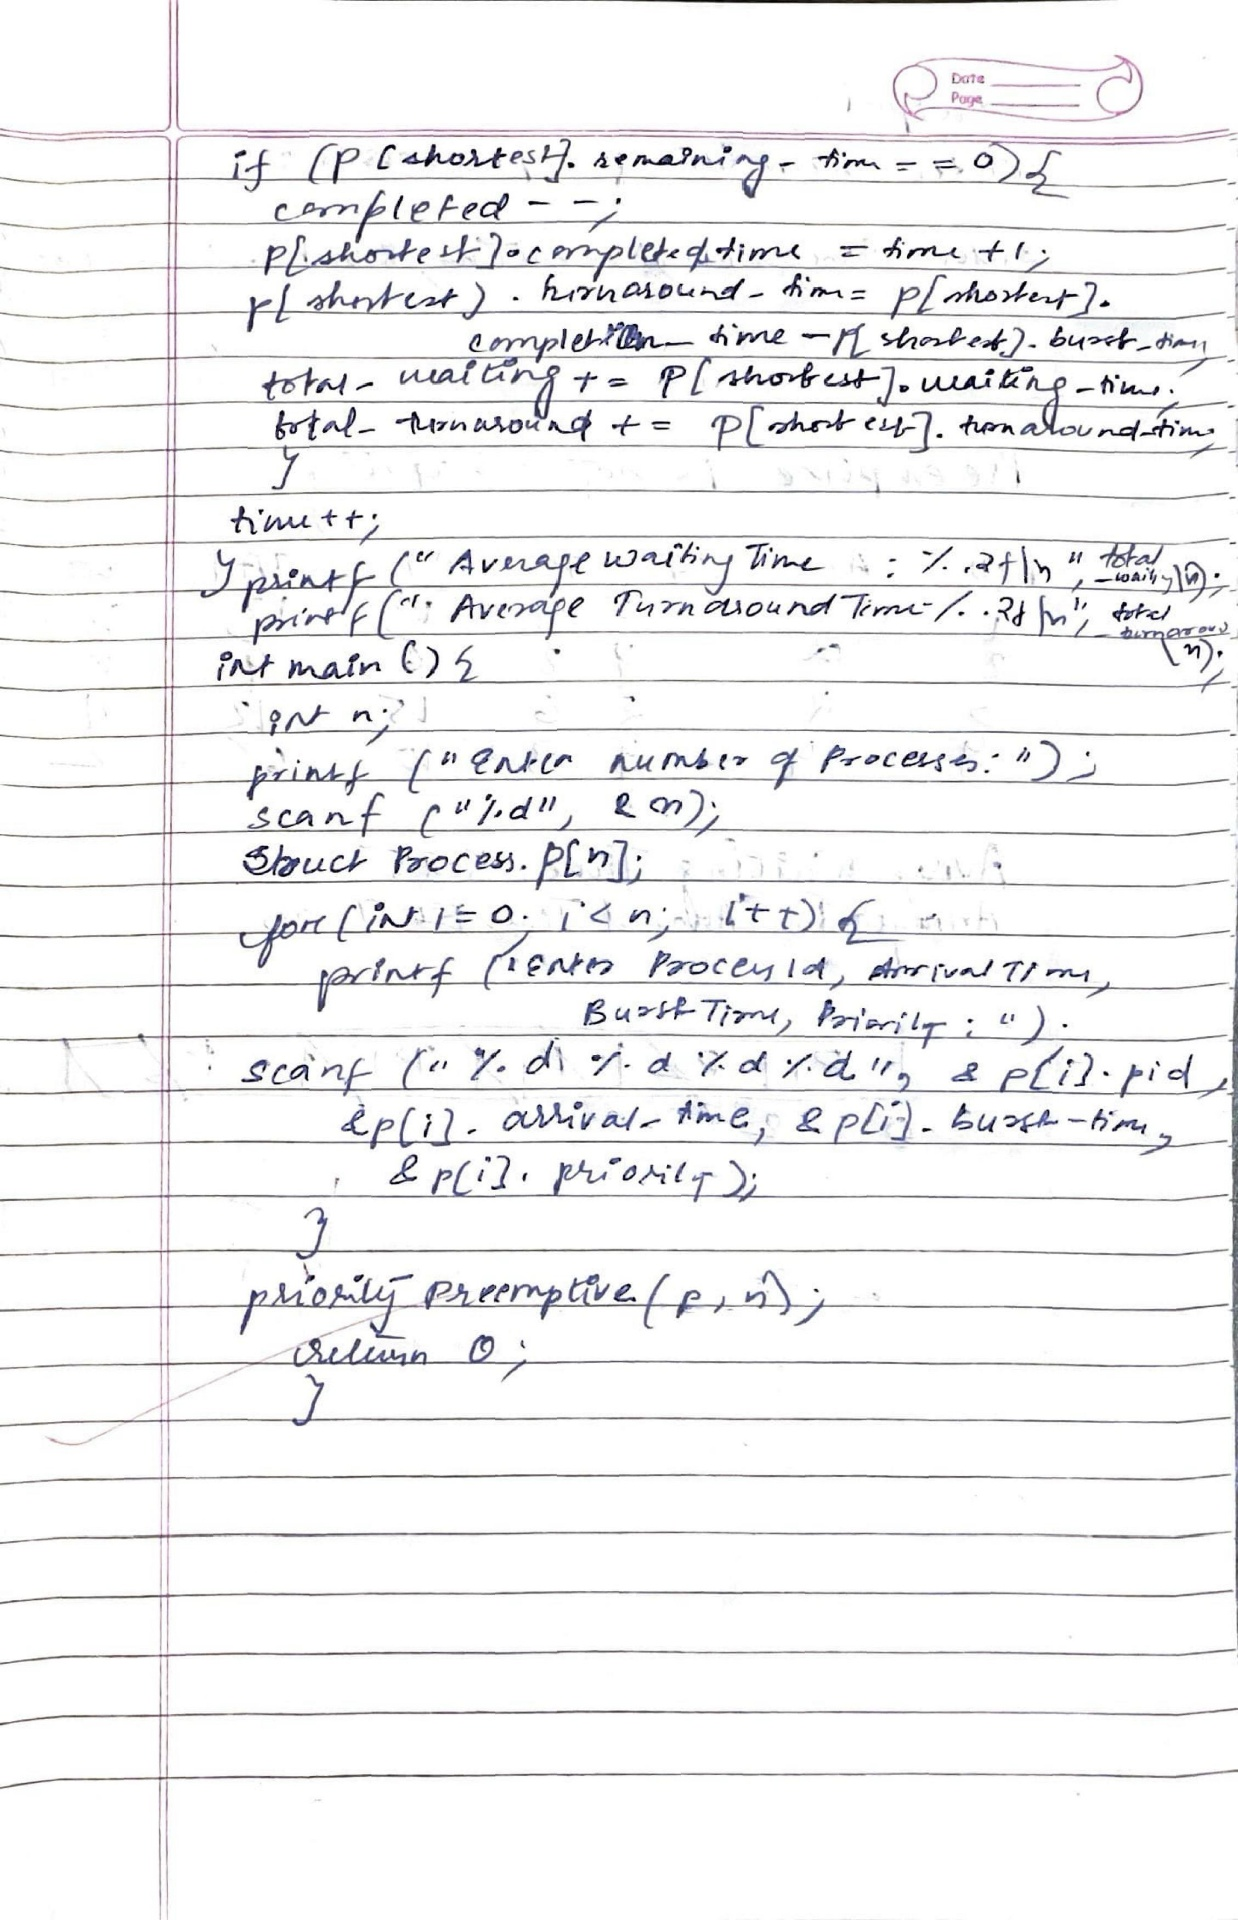 Date
Page
if (P[shortest]. remaining- time = = 0){
completed - -;
P[shortest].completed time = time +1;
p[shortest]. turnaround- time= p[shortest].
completion_ time - P[shortest]. burst_time,
total- waiting += P[shortest].waiting-time;
total- turnaround += P[shortest]. turnaround-time,
}
time++;
} printf (" Average Waiting Time : %.2f\n", total -waiting/n);
printf(" Average Turnaround Time %.2f\n", total -turnaround/n);
int main () {
int n;
printf ("Enter number of Processes: ");
scanf ("%d", &n);
Struct Process. P[n];
for (int i=0; i<n; i++) {
printf ("Enter Process Id, Arrival Time,
Burst Time, Priority: ").
scanf ("%d %d %d %d", & p[i].pid,
&p[i]. arrival-time, &p[i]. burst-time,
& p[i]. priority);
}
priority Preemptive (p, n);
return 0;
}